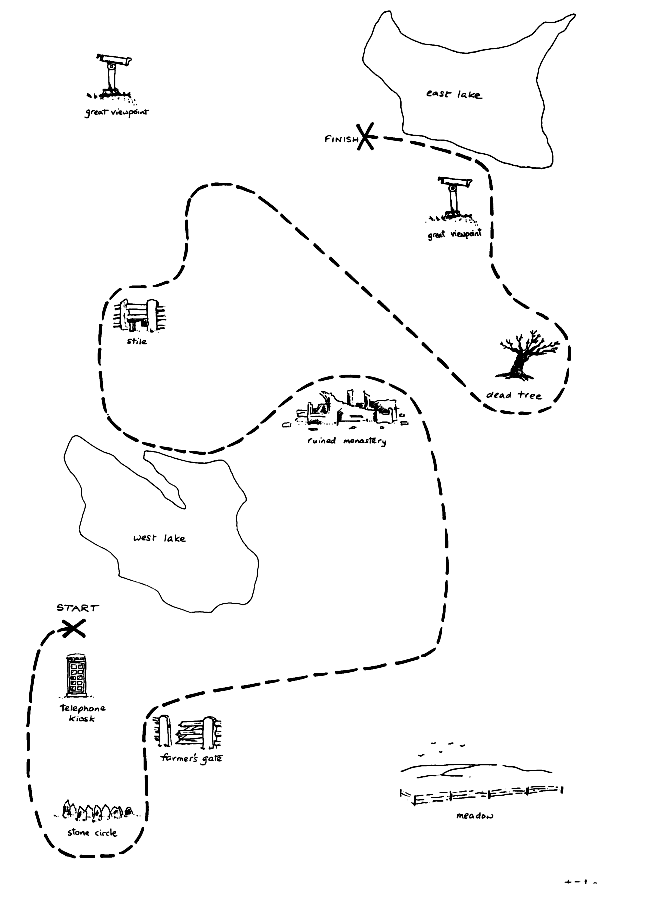 great viewpoint
east lake
FINISH
great viewpoint
stile
dead tree
ruined monastery
west lake
START
Telephone
kiosk
farmer's gate
stone circle
meadow